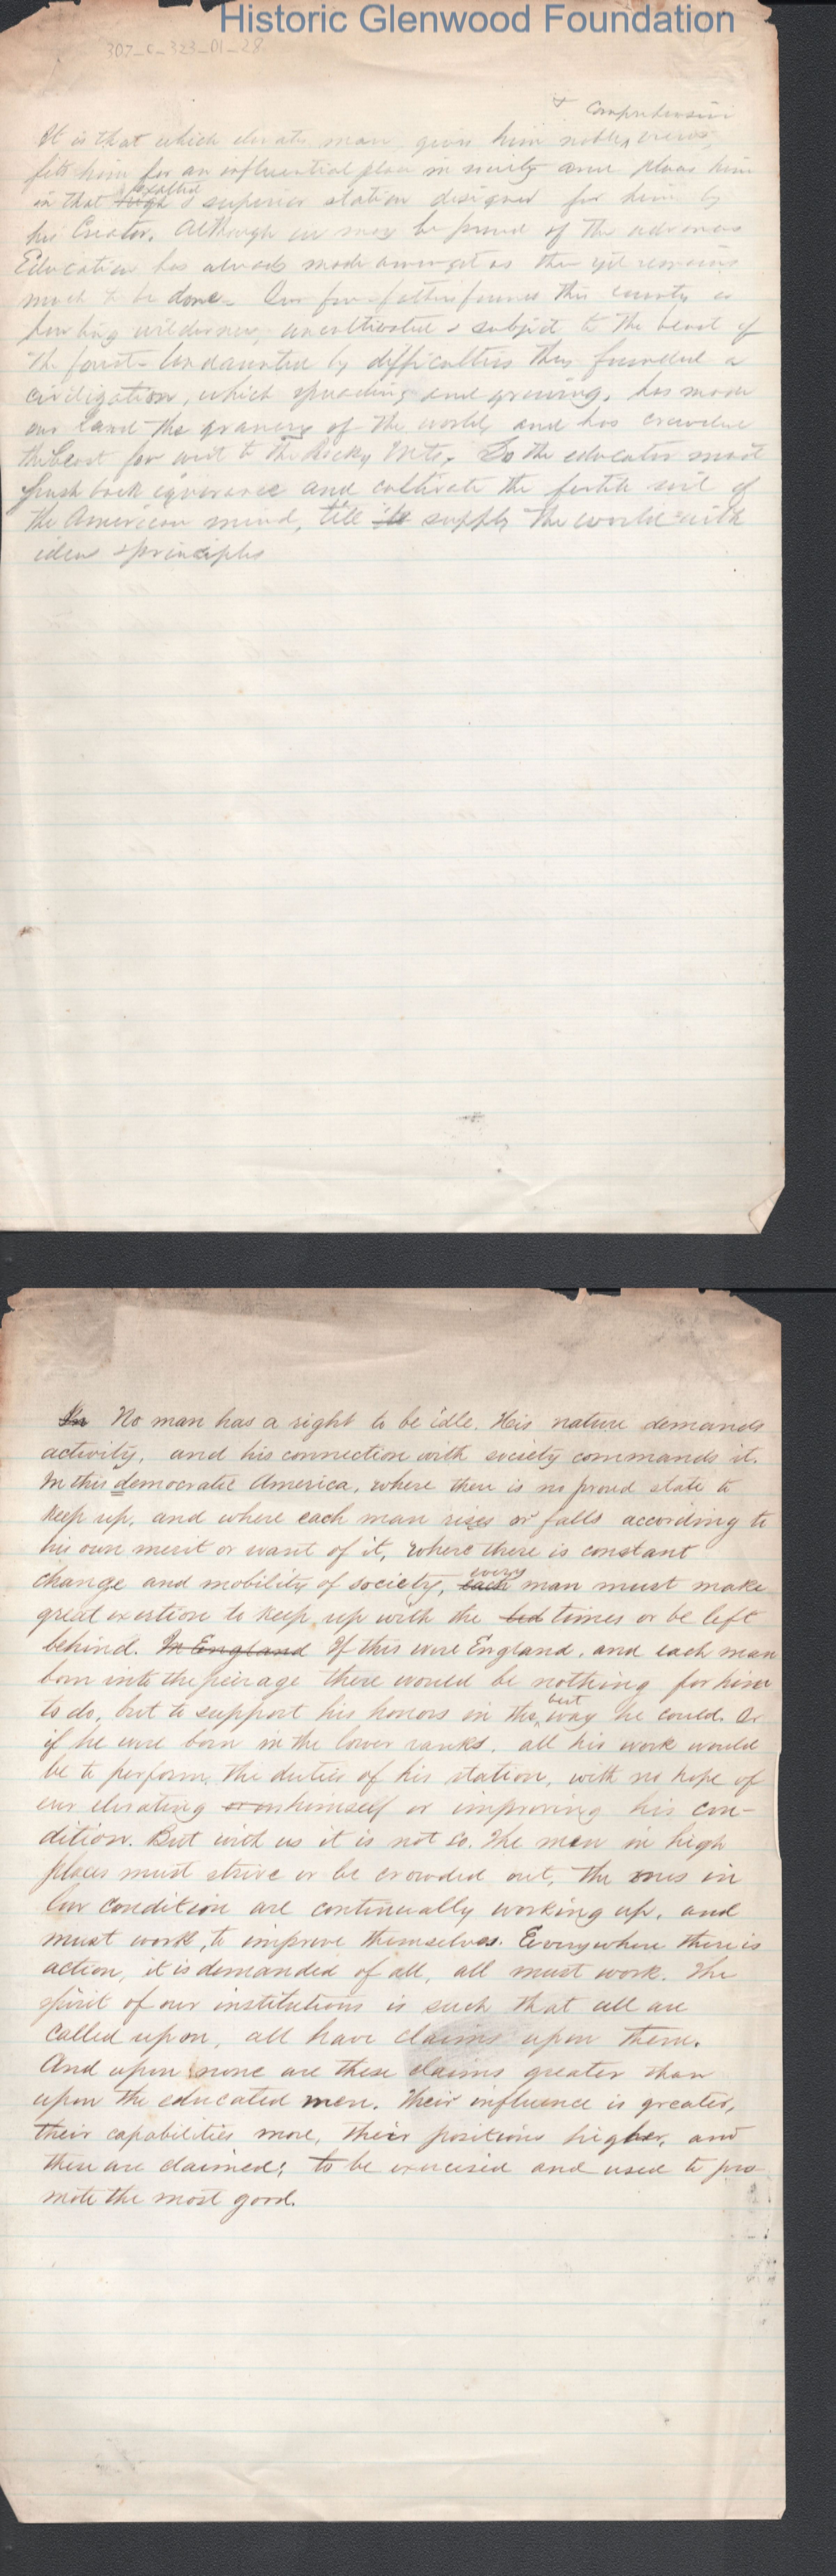 Historic Glenwood Foundation
307_C_323_01_28
& Comprehensive
It is that which elevates man, gives him noble views,
fits him for an influential place in society and places him
exalted
in that high & superior station designed for him by
his Creator. Although we may be proud of the advances
Education has already made amongst us there yet remains
much to be done. Our fore-fathers found this country a
howling wilderness, uncultivated & subject to the beast of
the forest. Undaunted by difficulties they founded a
civilization, which spreading and growing, has made
our land the granery of the world, and has crowded
the beast far west to the Rocky Mts. So the educator must
push back ignorance and cultivate the fertile soil of
the American mind, till supply the world with
ideas & principles
In No man has a right to be idle. His nature demands
activity, and his connection with society commands it.
In this democratic America, where there is no proud state to
keep up, and where each man rises or falls according to
his own merit or want of it, where there is constant
every
change and mobility of society, each man must make
great exertion to keep up with the times or be left
behind. In England If this were England, and each man
born into the peerage there would be nothing for him
best
to do, but to support his honors in the way he could. Or
if he were born in the lower ranks, all his work would
be to perform the duties of his station, with no hope of
ever elevating himself or improving his con-
dition. But with us it is not so. The men in high
places must strive or be crowded out, the ones in
low condition are continually working up, and
must work, to improve themselves. Everywhere there is
action, it is demanded of all, all must work. The
spirit of our institutions is such that all are
called upon, all have claims upon them.
And upon none are these claims greater than
upon the educated men. Their influence is greater,
their capabilities more, their positions higher, and
these are claimed; to be exercised and used to pro-
mote the most good.